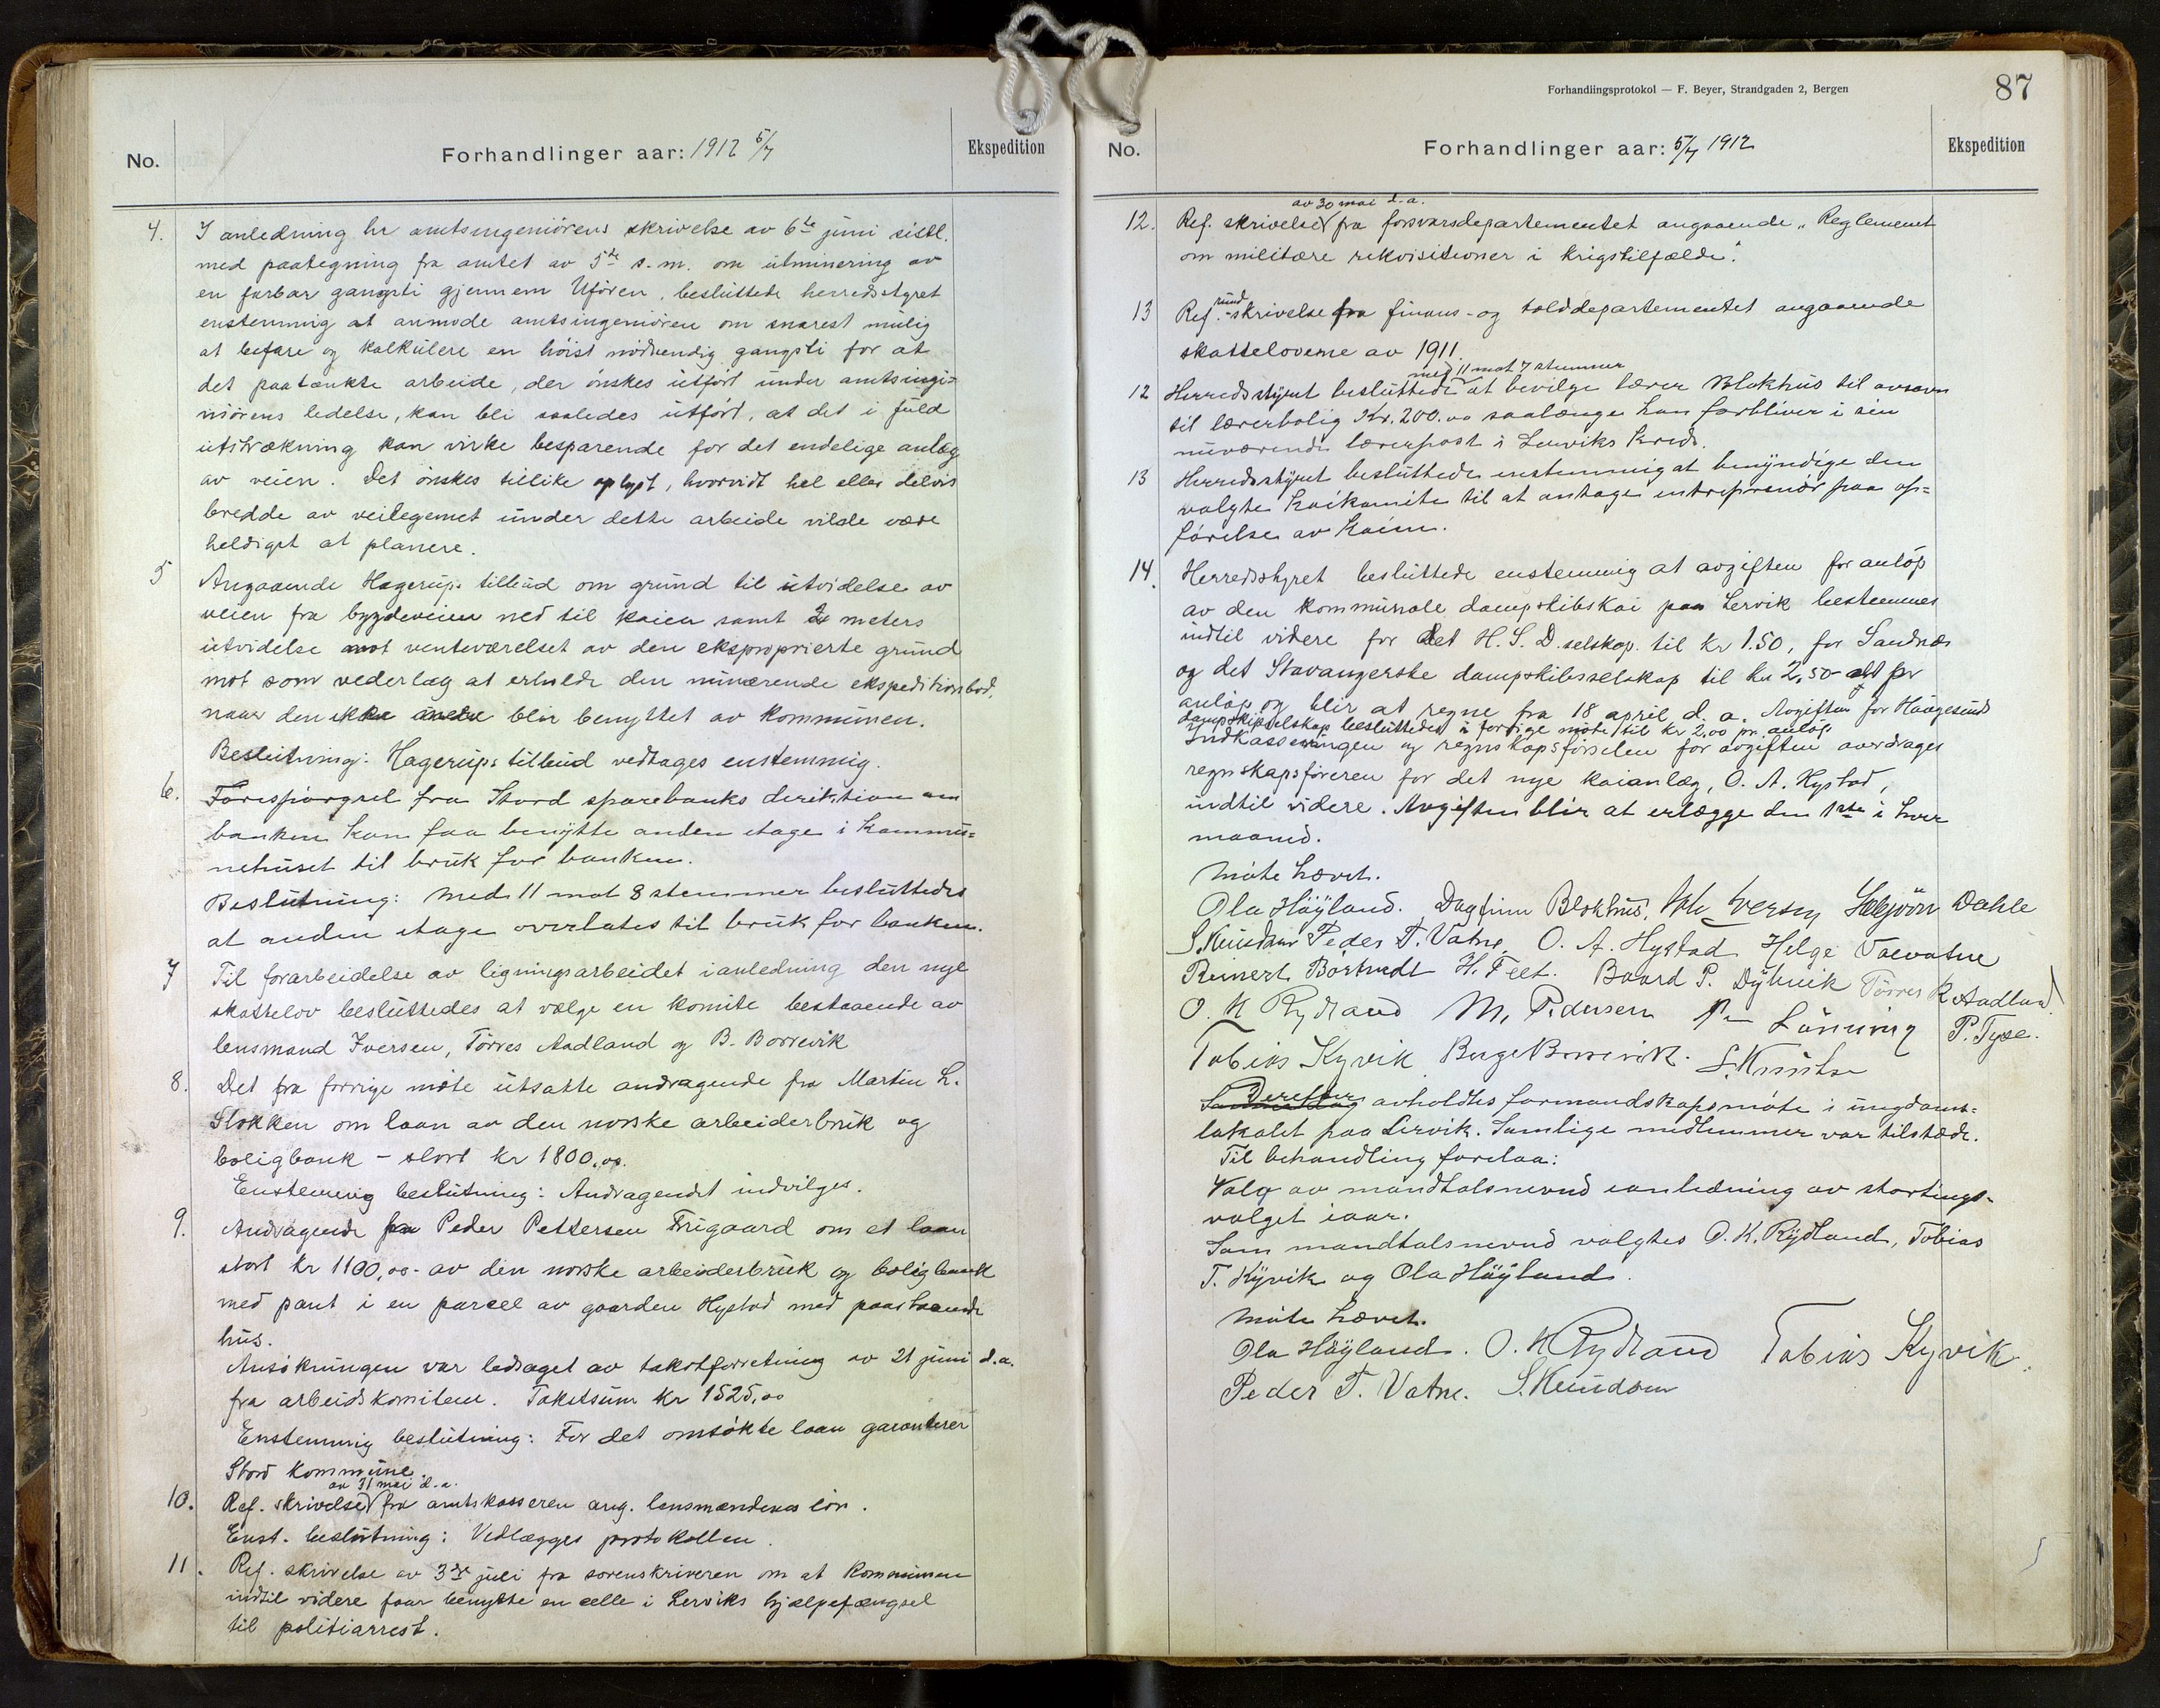 No.
Forhandlinger aar: 1912 5/7
Ekspedition
4. I anledning hr amtsingeniörens skrivelse av 6te juni sistl.
med paategning fra amtet av 5te s.m. om utminering av
en farbar gangsti gjennem Ufören, besluttede herredsstyret
enstemmig at anmode amtsingeniören om snarest mulig
at befare og kalkulere en höist nödvendig gangsti for at
det paatænkte arbeide, der önskes utfört under amtsingi-
niörens ledelse, kan bli saaledes utfört, at det i fuld
utstrækning kan virke besparende for det endelige anlæg
av veien. Det önskes tillike oplyst, hvorvidt hel eller delvis
bredde av veilegemet under dette arbeide vilde være
heldigst at planere.
5 Angaaende Hagerups tilbud om grund til utvidelse av
veien fra bygdeveien ned til kaien samt 2 meters
utvidelse mot venteværelset av den eksproprierte grund
mot som vederlag at erholde den nuværende ekspeditionsbod,
naar den ikke mere blir benyttet av kommunen.
Beslutning: Hagerups tilbud vedtages enstemmig.
6. Forespörgsel fra Stord sparebanks direktion om
banken kan faa benytte anden etage i kommu-
nehuset til bruk for banken.
Beslutning: Med 11 mot 8 stemmer besluttedes
at anden etage overlates til bruk for banken.
7 Til forarbeidelse av ligningsarbeidet i anledning den nye
skattelov besluttedes at vælge en komite bestaaende av
lensmand Iversen, Törres Aadland og B. Borrevik
8. Det fra forrige möte utsatte andragende fra Martin L.
Stokken om laan av den norske arbeiderbruk og
boligbank – stort kr 1800,00.
Enstemmig beslutning: Andragendet indvilges.
9. Andragende fra Peder Pettersen Frigaard om et laan
stort kr 1100,00 av den norske arbeiderbruk og boligbank
med pant i en parcel av gaarden Hystad med paastaaende
hus.
Ansökningen var ledsaget av takstforretning av 21 juni d.a.
fra arbeidskomiteen. Takstsum kr 1525,00
Enstemmig beslutning: For det omsökte laan garanterer
Stord kommune.
av 31 mai d.a.
10. Ref. skrivelse fra amtskasseren ang. lensmændenes lön.
Enst. beslutning: Vedlægges protokollen.
11. Ref. skrivelse av 3dje juli fra sorenskriveren om at kommunen
indtil videre faar benytte en celle i Lerviks hjælpefængsel
til politiarrest.
Forhandlingsprotokol — F. Beyer, Strandgaden 2, Bergen
87
No.
Forhandlinger aar: 5/7 1912
Ekspedition
av 30 mai d.a.
12. Ref. skrivelse fra forsvarsdepartementet angaaende „Reglement
om militære rekvisitioner i krigstilfælde".
13 Ref. rund-skrivelse fra finans- og tolddepartementet angaaende
skattelovene av 1911.
med 11 mot 7 stemmer
12 Herredsstyret besluttede at bevilge lærer Blokhus til avsavn
til lærerbolig Kr. 200.00 saalænge han forbliver i sin
nuværende lærerpost i Lerviks kreds.
13 Herredsstyret besluttede enstemmig at bemyndige den
valgte kaikomite til at antage entreprenör paa op-
förelse av kaien.
14. Herredsstyret besluttede enstemmig at avgiften for anlöp
av den kommunale dampskibskai paa Lervik bestemmes
indtil videre for det H. S. D. selskap. til kr 1.50, for Sandnæs
og det Stavangerske dampskibsselskap til kr 2,50 alt pr
anlöp og blir at regne fra 18 april d.a. Avgiften for Haugesunds
dampskipselskap besluttedes i forrige möte til kr 2,00 pr. anlöp
Indkasseringen og regnskapsförselen for avgiften overdrages
regnskapsföreren for det nye kaianlæg, O. A. Hystad,
indtil videre. Avgiften blir at erlægge den 1ste i hver
maaned.
Möte hævet.
Ola Höyland. Dagfinn Blokhus. Joh Iversen Halvjörn Dahle
S. Knudsen Peder T. Vatne O. A. Hystad Helge Vaevatne
Reinert Börtvedt H. Feet. Baard P. Dybvik Törres R Aadland.
O. K Rydland M. Pedersen Lönning P. Tyse.
Tobias Kyvik Berge Borrevik. S. Knutsen
Derefter
avholdtes formandskapsmöte i ungdoms-
lokalet paa Lervik. Samtlige medlemmer var tilstæde.
Til behandling forelaa:
Valg av mandtalsnevnd i anledning av stortings-
valget iaar.
Som mandtalsnevnd valgtes O. K. Rydland, Tobias
T. Kyvik og Ola Höyland.
Möte hævet.
Ola Höyland. O. K Rydland Tobias Kyvik.
Peder T. Vatne. S. Knudsen